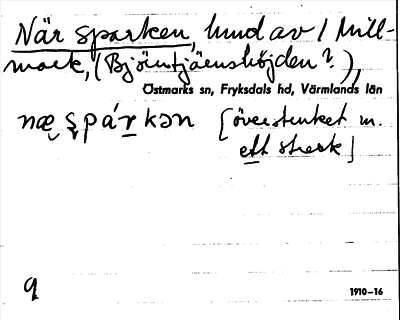 När sparken, hund av / Mill-
mark, (Björntjärnshöjden?),
Östmarks sn, Fryksdals hd, Värmlands län
næ spárkən [överstruket m.
ett streck]
9
1910–16